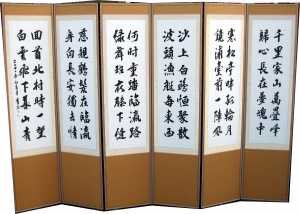 千里家山萬疊峰
歸心長在夢魂中
寒松亭畔孤輪月
鏡浦臺前一陣風
沙上白鷗恒聚散
波頭漁艇每東西
何時重踏臨瀛路
綵舞班衣膝下縫
慈親鶴髮在臨瀛
身向長安獨去情
回首北村時一望
白雲飛下暮山青